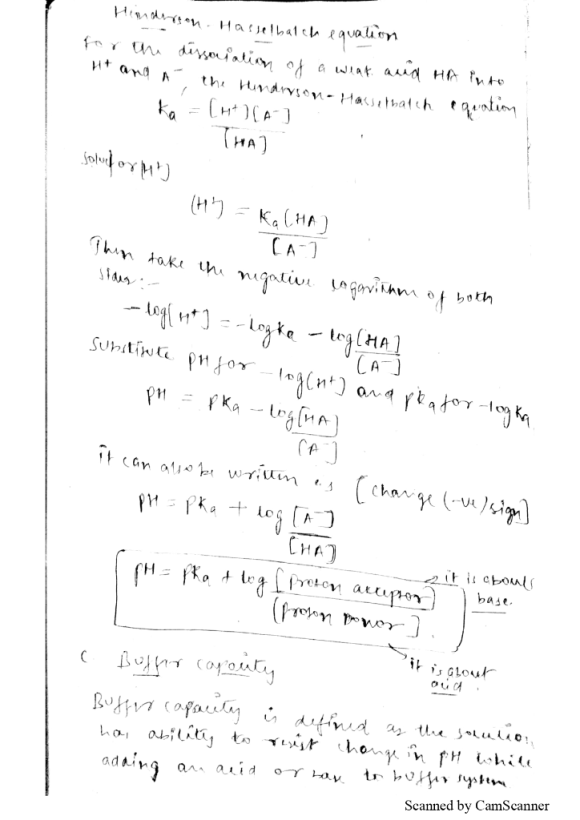 Hinderson-Hasselbatch equation
For the dissociation of a weak acid HA into
H⁺ and A⁻, the Hinderson-Hasselbatch equation
Ka = [H⁺][A⁻]
[HA]
Solve for [H⁺]
[H⁺] = Ka [HA]
[A⁻]
Then take the negative logarithm of both
sides:-
-log[H⁺] = -log Ka - log [HA]
[A⁻]
Substitute pH for -log[H⁺] and pKa for -log Ka
pH = pKa - log [HA]
[A⁻]
it can also be written as [change (-ve) sign]
pH = pKa + log [A⁻]
[HA]
pH = pKa + log [Proton acceptor] → it is about base.
[Proton Donor] → it is about acid.
C Buffer capacity
Buffer capacity is defined as the solution
has ability to resist change in pH while
adding an acid or base to buffer system
Scanned by CamScanner